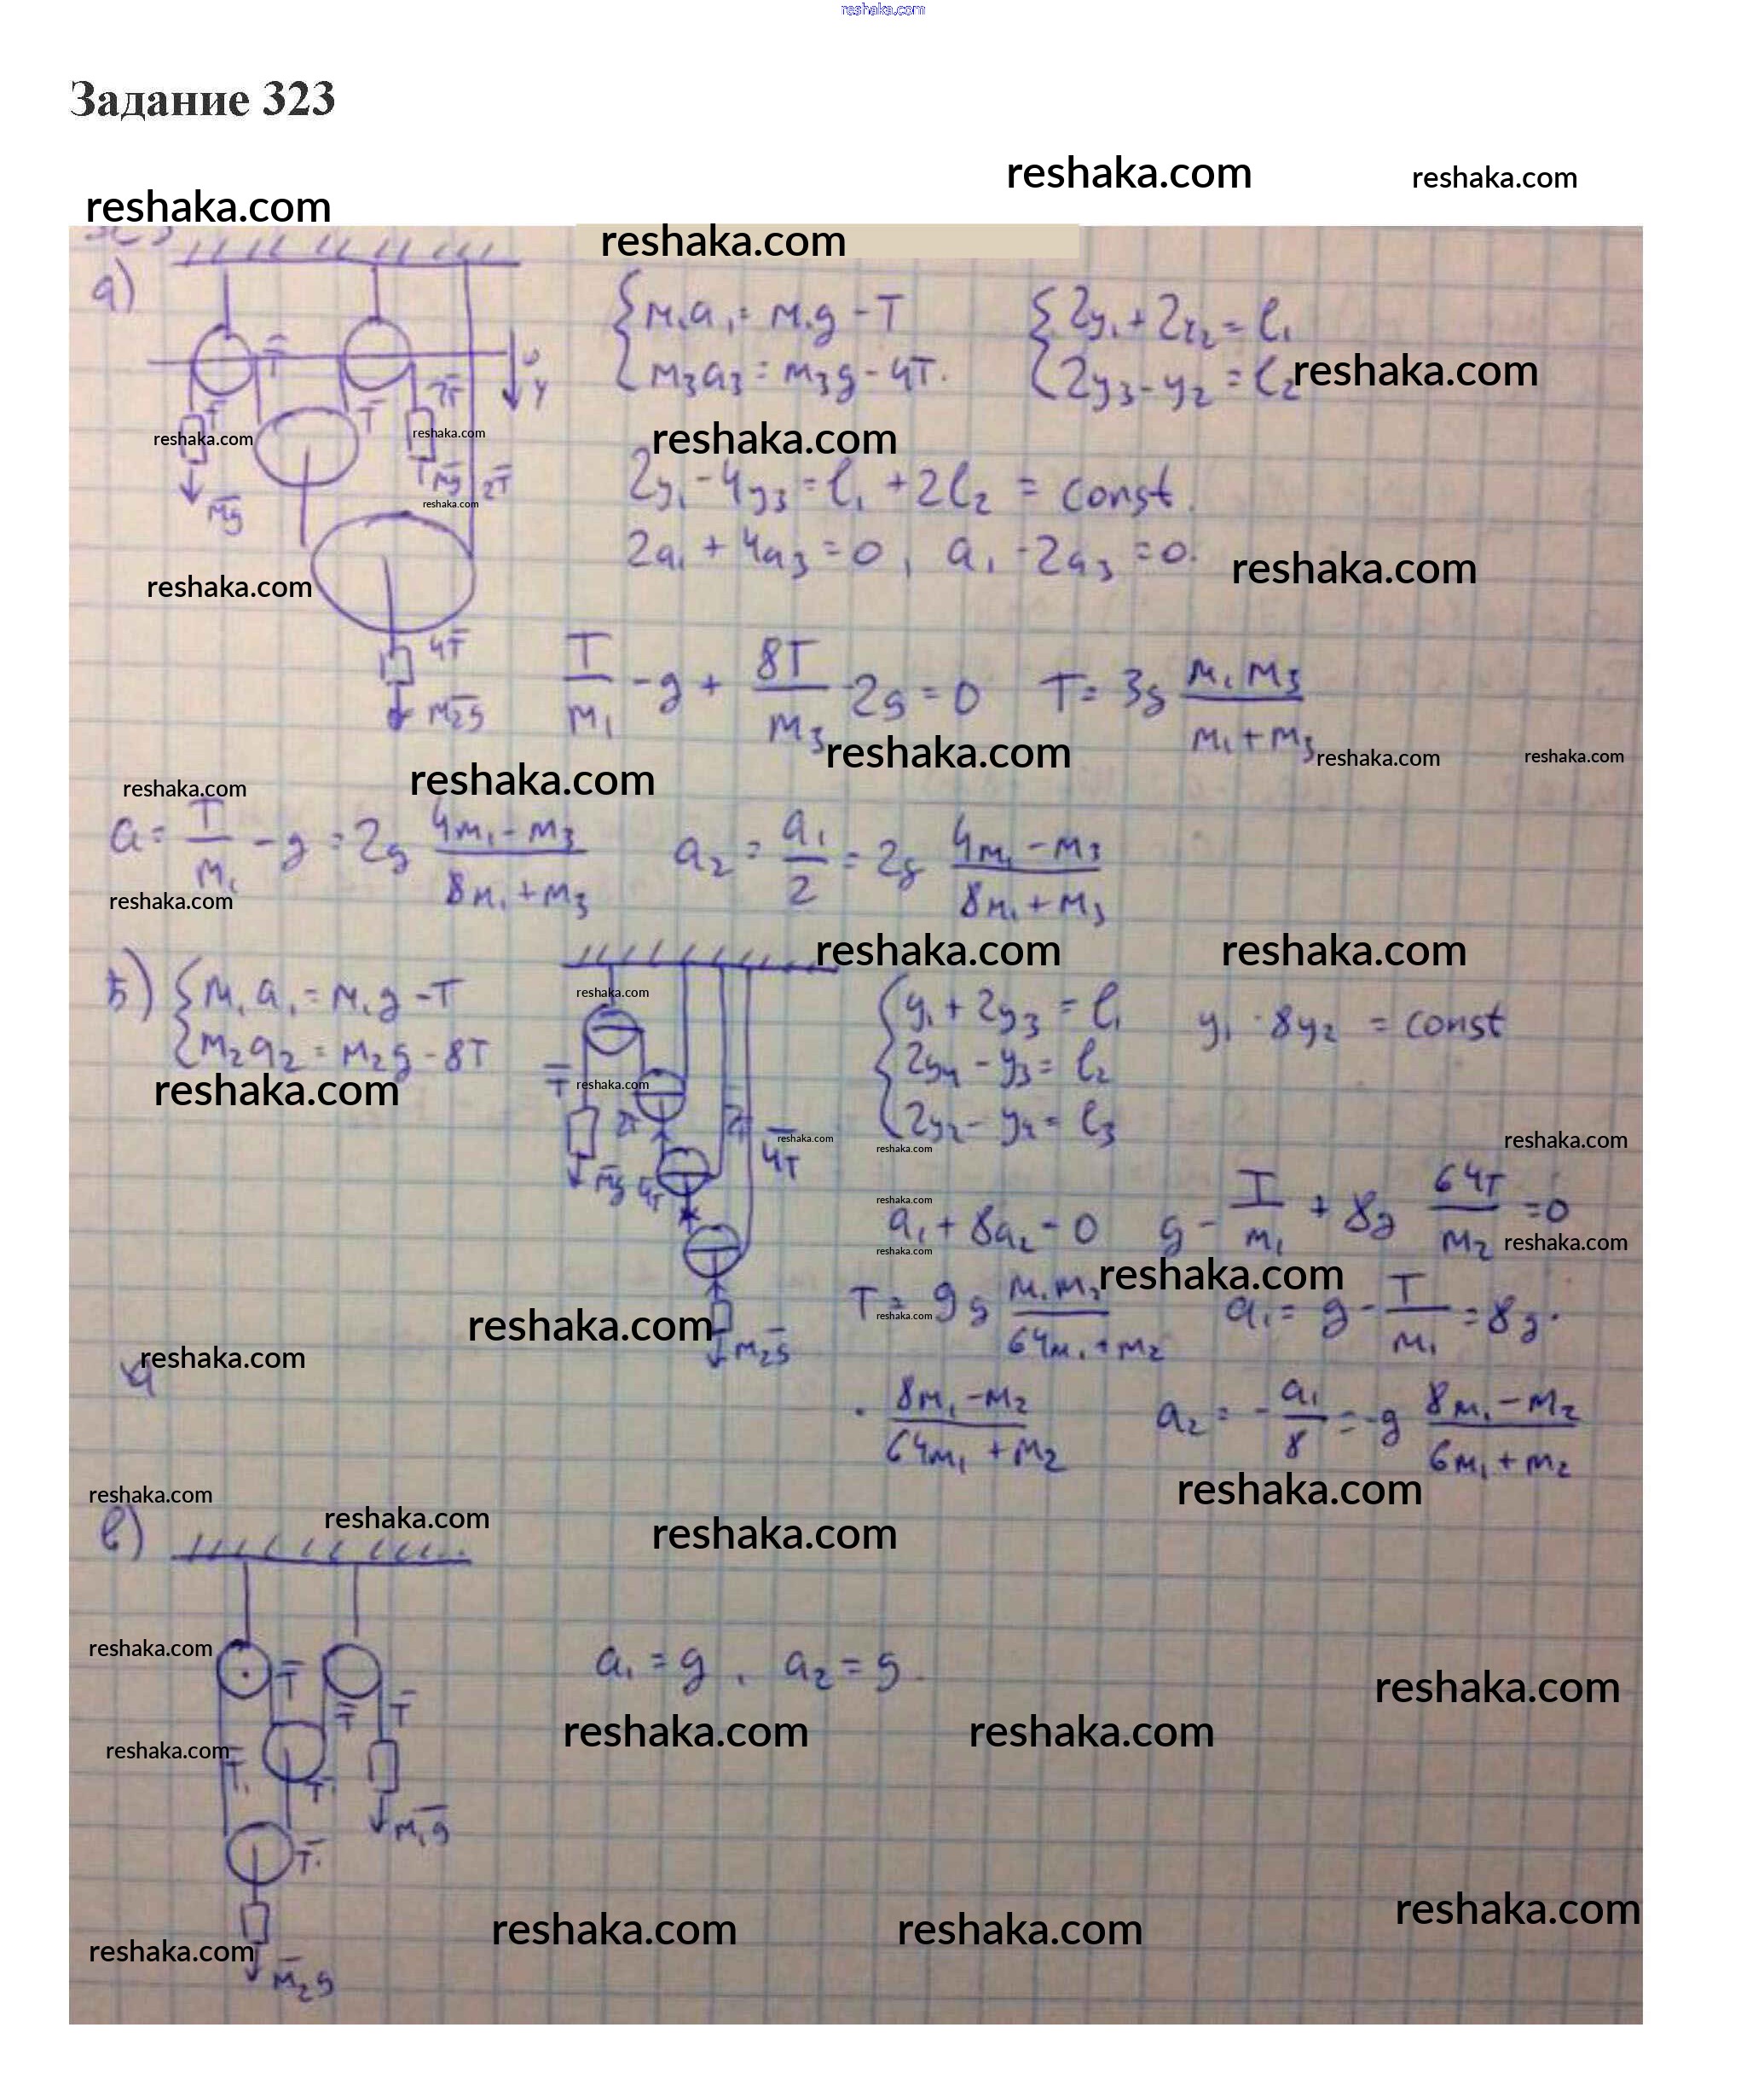 reshaka.com
Задание 323
reshaka.com
reshaka.com
reshaka.com
reshaka.com
а)
{ m₁a₁ = m₁g - T
{ m₃a₃ = m₃g - 4T.
{ 2y₁ + 2y₂ = l₁
{ 2y₃ - y₂ = l₂
reshaka.com
T T T 2T
0
y
reshaka.com
reshaka.com
reshaka.com
mg
mg
reshaka.com
2y₁ - 4y₃ = l₁ + 2l₂ = const.
2a₁ + 4a₃ = 0, a₁ - 2a₃ = 0.
reshaka.com
reshaka.com
4T
m₂g
T/m₁ - g + 8T/m₃ - 2g = 0 T = 3g m₁m₃/m₁+m₃
reshaka.com
reshaka.com
reshaka.com
reshaka.com
reshaka.com
a = T/m₁ - g = 2g 4m₁-m₃/8m₁+m₃ a₂ = a₁/2 = 2g 4m₁-m₃/8m₁+m₃
reshaka.com
reshaka.com
reshaka.com
reshaka.com
б) { m₁a₁ = m₁g - T
{ m₂a₂ = m₂g - 8T
reshaka.com
{ y₁ + 2y₃ = l₁
{ 2y₄ - y₃ = l₂
{ 2y₂ - y₄ = l₃
y₁ · 8y₂ = const
reshaka.com
T
2T
4T
mg 4T
reshaka.com
reshaka.com
reshaka.com
reshaka.com
a₁ + 8a₂ = 0 g - T/m₁ + 8g 64T/m₂ = 0
reshaka.com
reshaka.com
reshaka.com
T = 9g m₁m₂/64m₁+m₂ a₁ = g - T/m₁ = 8g·
reshaka.com
reshaka.com
m₂g
reshaka.com
· 8m₁-m₂/64m₁+m₂ a₂ = -a₁/8 = -g 8m₁-m₂/6m₁+m₂
reshaka.com
reshaka.com
reshaka.com
reshaka.com
в)
reshaka.com
a₁ = g, a₂ = g.
T T T
reshaka.com
reshaka.com
reshaka.com
reshaka.com
T T
m₁g
T
reshaka.com
reshaka.com
reshaka.com
reshaka.com
m₂g